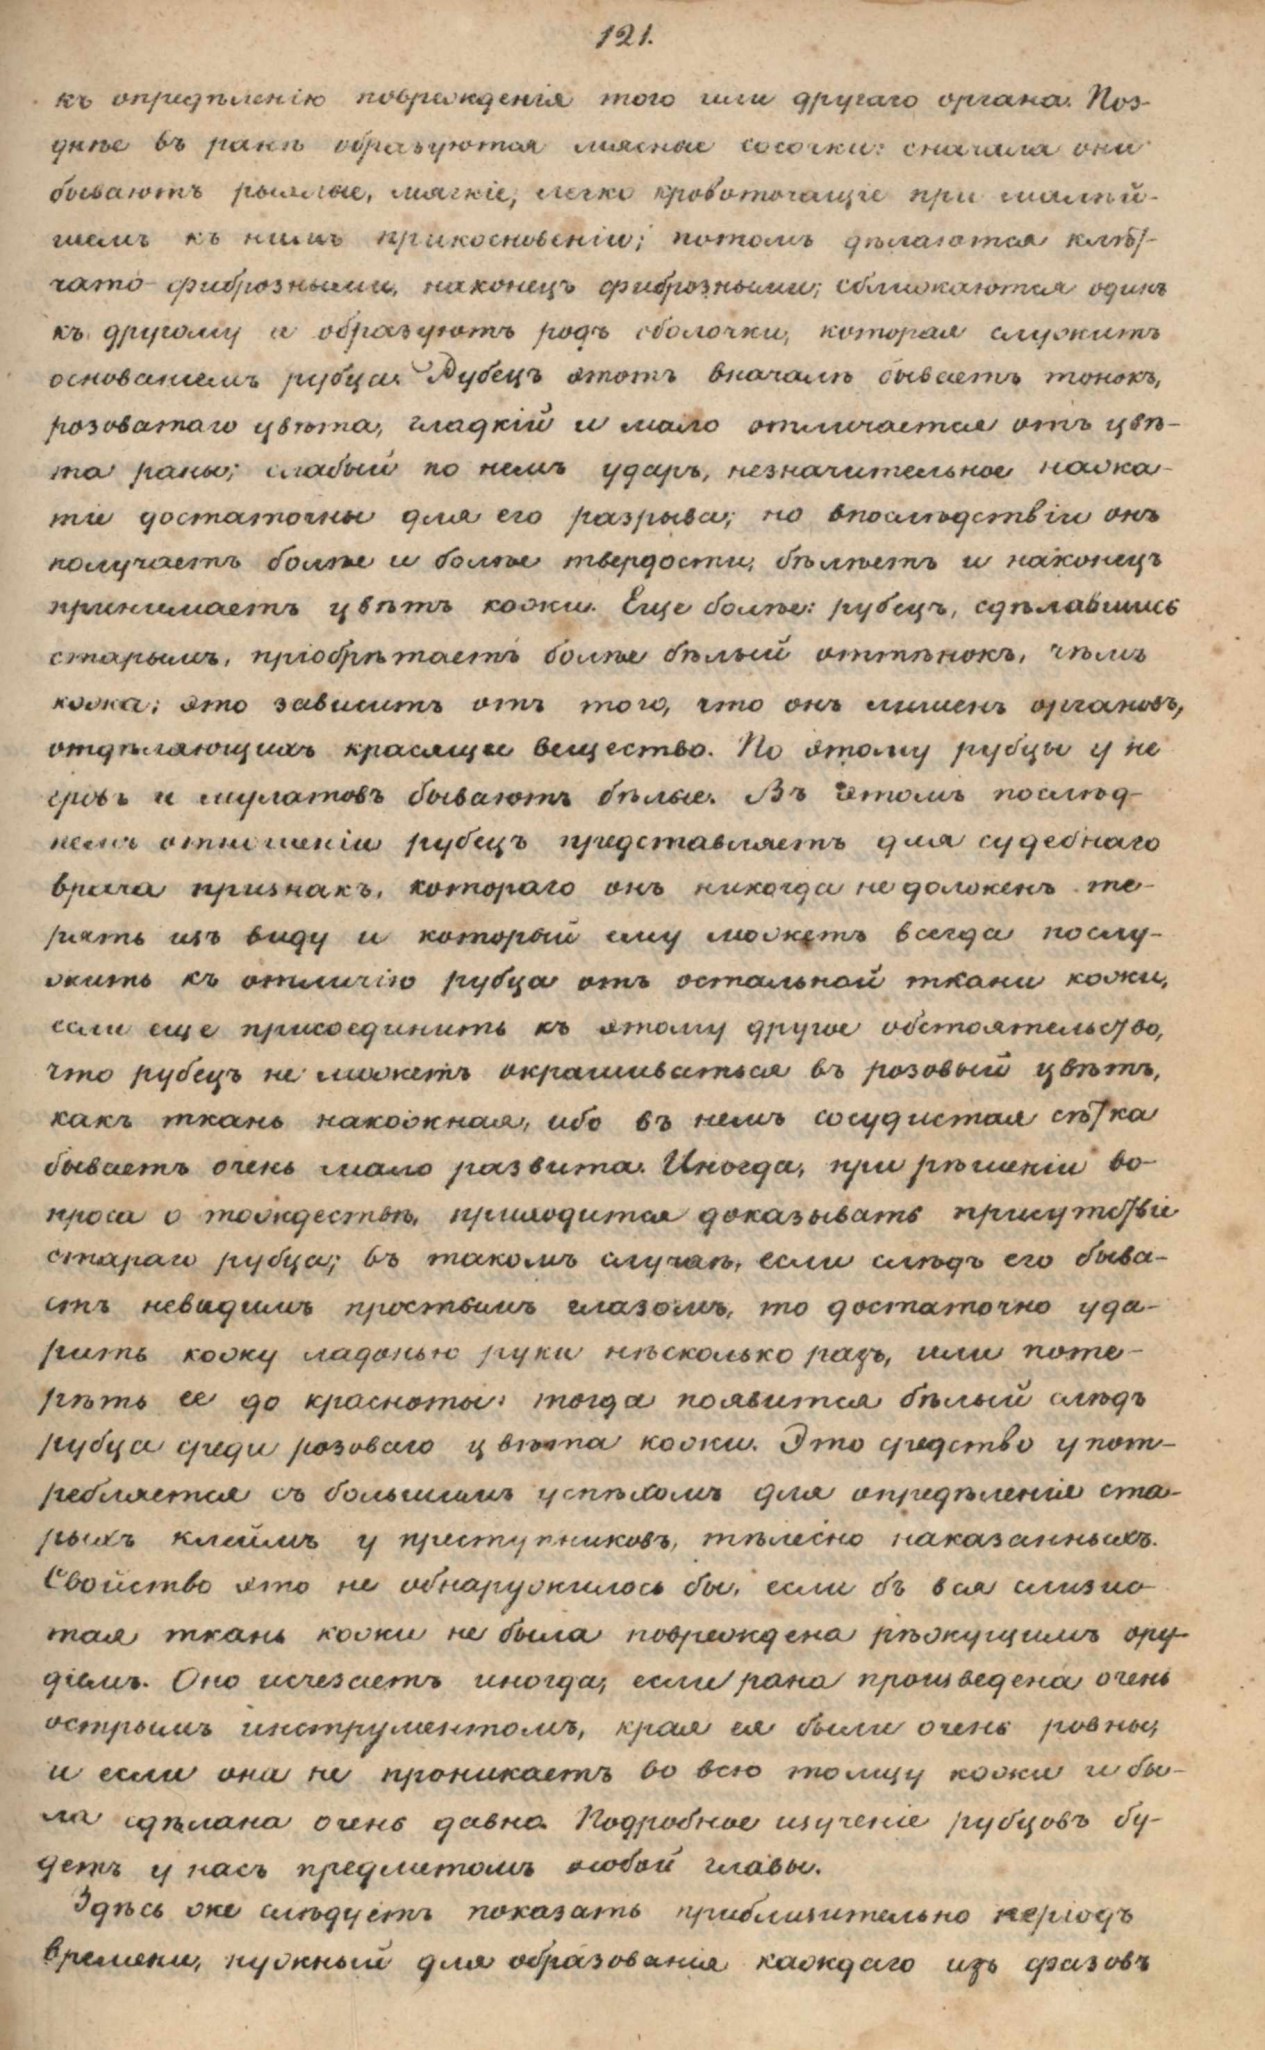 121.
къ опредѣленію поврежденія того или другаго органа. Поз-
днѣе въ ранѣ образуются мясные сосочки: сначала они
бываютъ рыхлые, мягкіе, легко кровоточащіе при малѣй-
шемъ къ нимъ прикосновеніи; потомъ дѣлаются клѣт-
чато-фиброзными, наконецъ фиброзными; сближаются одинъ
къ другому и образуютъ родъ оболочки, которая служитъ
основаніемъ рубца. Рубецъ этотъ вначалѣ бываетъ тонокъ,
розоватаго цвѣта, гладкій и мало отличается отъ цвѣ-
та раны; слабый по немъ ударъ, незначительное нажа-
тіе достаточны для его разрыва; но впослѣдствіи онъ
получаетъ болѣе и болѣе твердости, бѣлѣетъ и наконецъ
принимаетъ цвѣтъ кожи. Еще болѣе: рубецъ, сдѣлавшись
старымъ, пріобрѣтаетъ болѣе бѣлый оттѣнокъ, чѣмъ
кожа; это зависитъ отъ того, что онъ лишенъ органовъ,
отдѣляющихъ красящее вещество. По этому рубцы у не
гровъ и мулатовъ бываютъ бѣлые. Въ этомъ послѣд-
немъ отношеніи рубецъ представляетъ для судебнаго
врача признакъ, котораго онъ никогда не долженъ те-
рять изъ виду и который ему можетъ всегда послу-
жить къ отличію рубца отъ остальной ткани кожи,
если еще присоединить къ этому другое обстоятельство,
что рубецъ не можетъ окрашиваться въ розовый цвѣтъ,
какъ ткань накожная, ибо въ немъ сосудистая сѣтка
бываетъ очень мало развита. Иногда, при рѣшеніи во-
проса о тождествѣ, приходится доказывать присутствіе
стараго рубца; въ такомъ случаѣ, если слѣдъ его быва-
етъ невидимъ простымъ глазомъ, то достаточно уда-
рить кожу ладонью руки нѣсколько разъ, или поте-
рѣть ее до красноты: тогда появится бѣлый слѣдъ
рубца среди розоваго цвѣта кожи. Это средство упот-
ребляется съ большимъ успѣхомъ для опредѣленія ста-
рыхъ клеймъ у преступниковъ, тѣлесно наказанныхъ.
Свойство это не обнаружилось бы, если бъ вся слизис-
тая ткань кожи не была повреждена рѣжущимъ ору-
діемъ. Оно исчезаетъ иногда, если рана произведена очень
острымъ инструментомъ, края ея были очень ровны,
и если она не проникаетъ во всю толщу кожи и бы-
ла сдѣлана очень давно. Подробное изученіе рубцовъ бу-
детъ у насъ предметомъ особой главы.
Здѣсь же слѣдуетъ показать приблизительно періодъ
времени, нужный для образованія каждаго изъ фазовъ